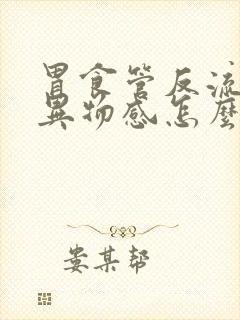 胃食管反流
異物感怎麼
娄某帮